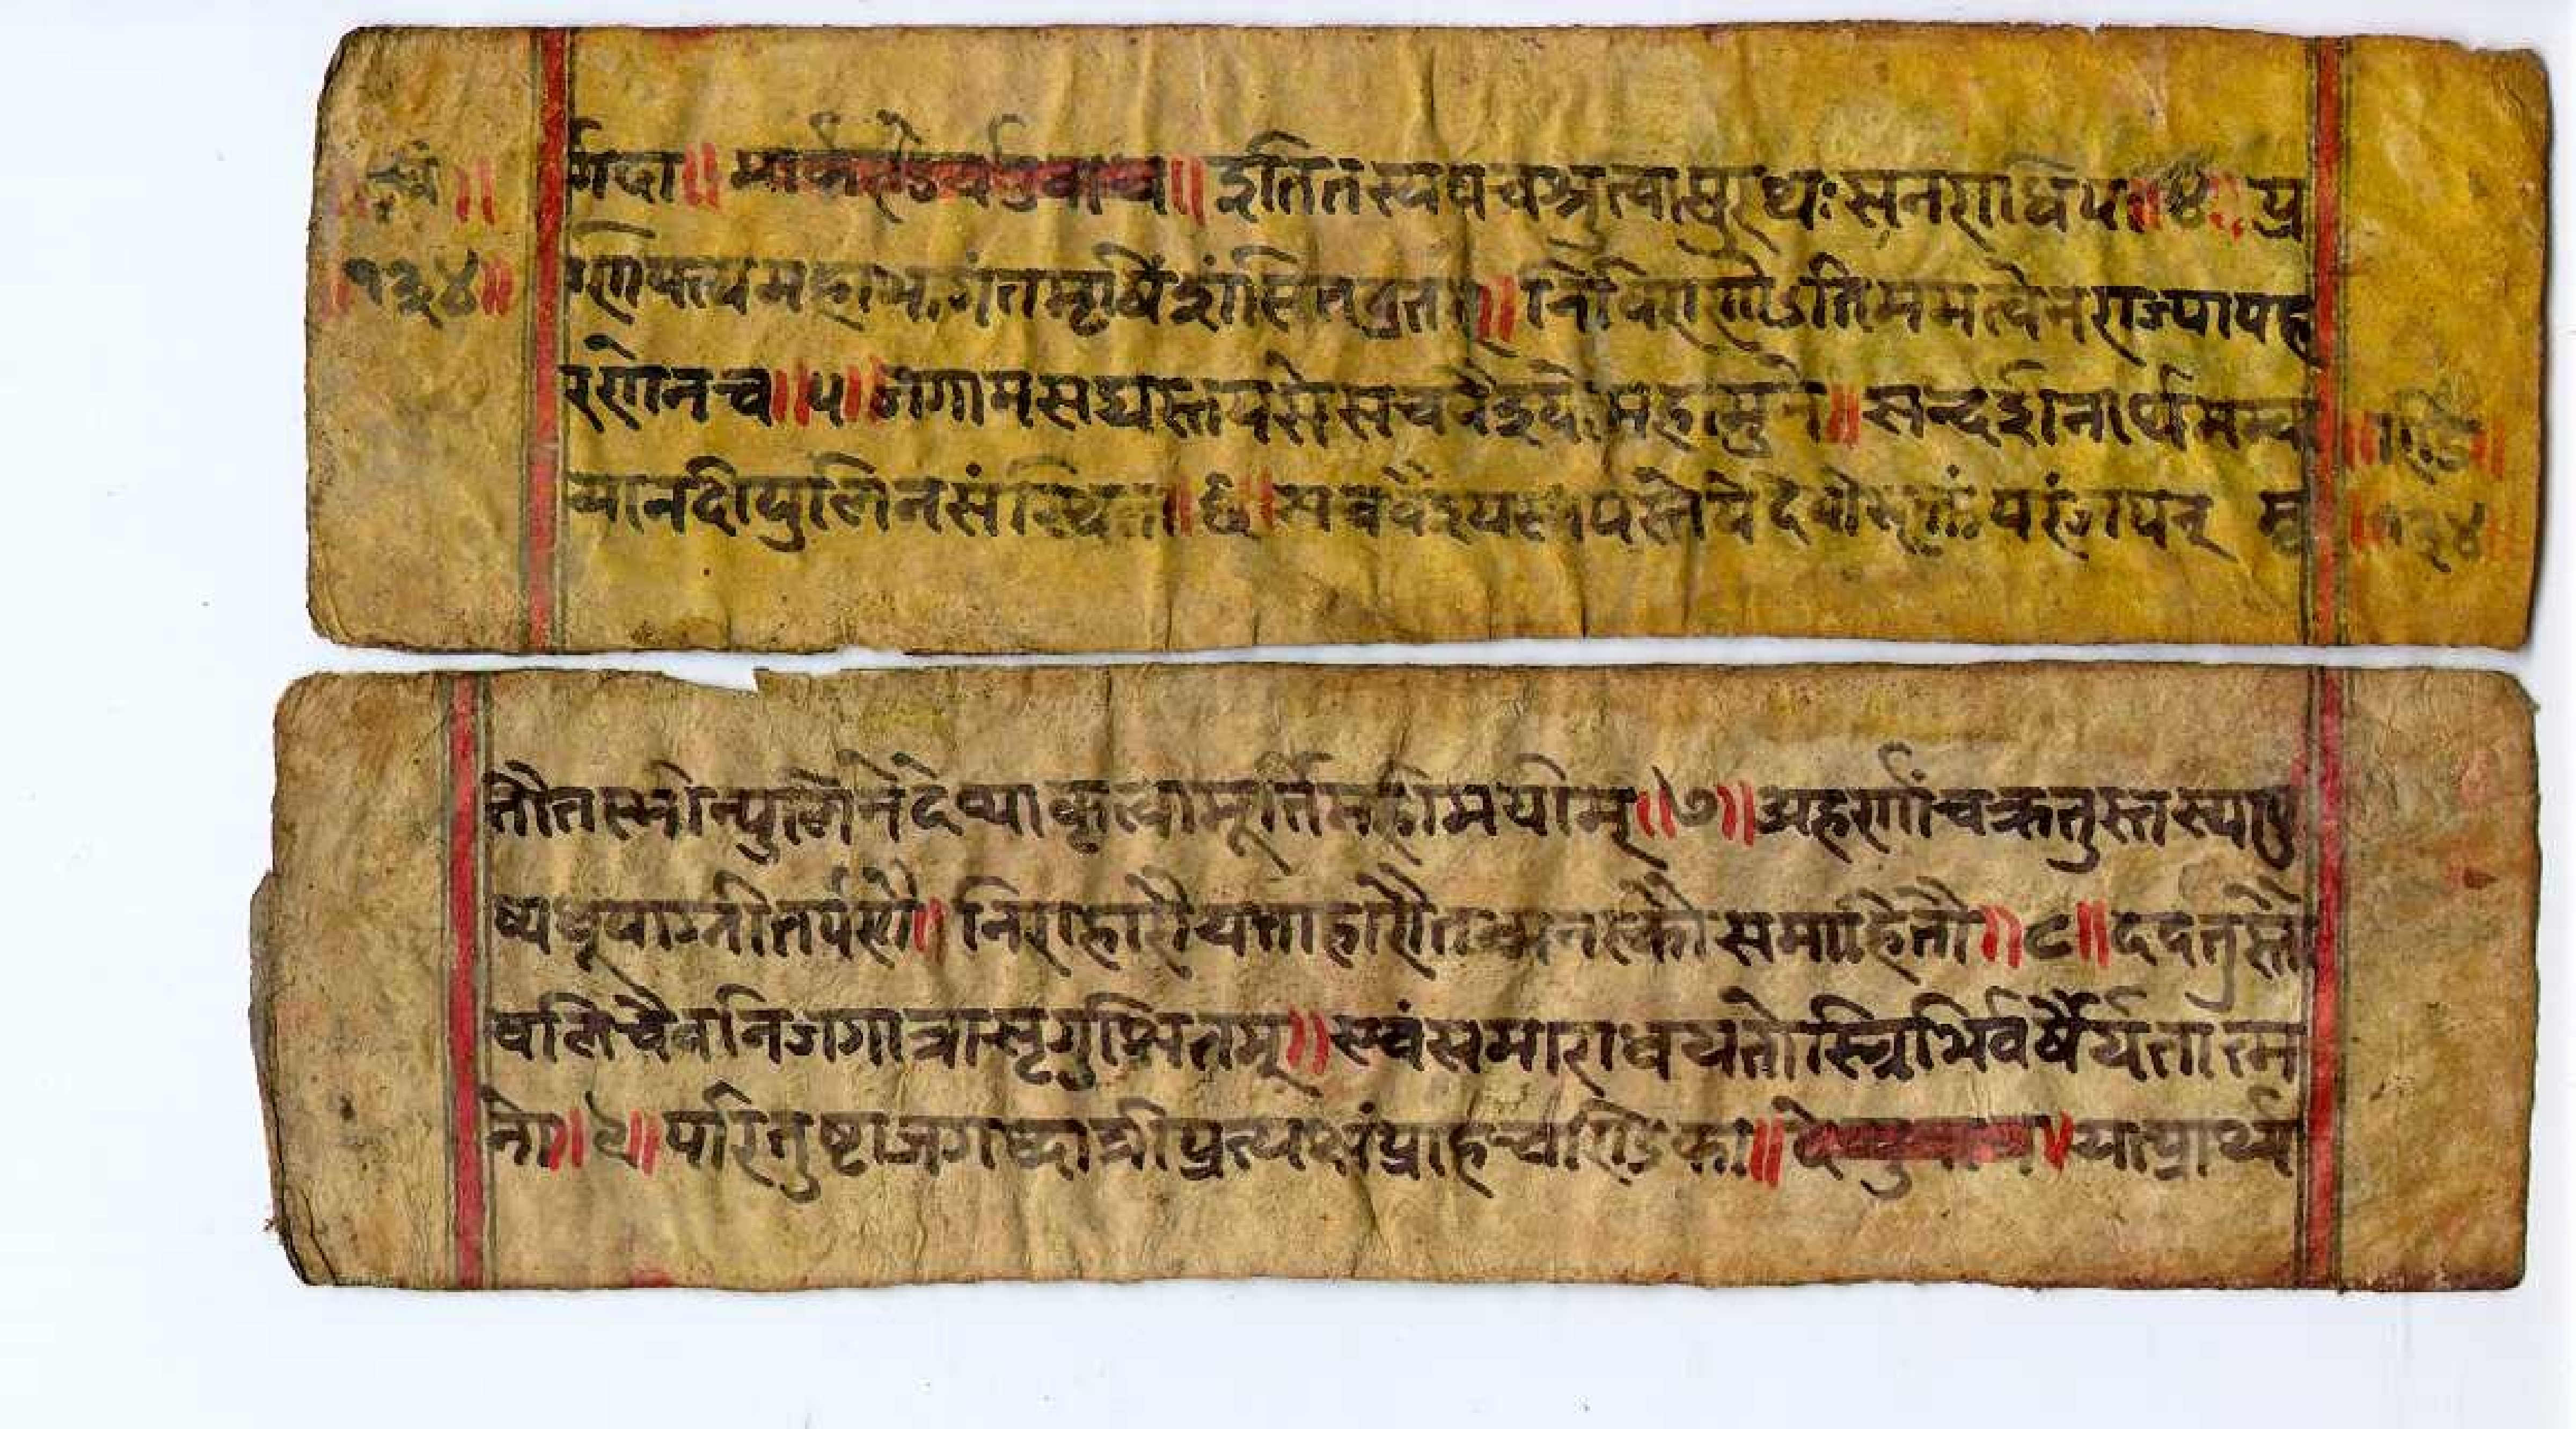 र्गदा॥ मार्कण्डेयउवाच॥ इतितस्यवचश्रुत्वासुरथःसनराधिप॥४॥ प्र
णिपत्यमहाभागंतमृषिंशंसितव्रतम्॥ निर्विण्णोऽतिममत्वेनराज्यापह
रणेनच॥५॥जगामसद्यस्तपसेसचवैश्योमहामुने॥सन्दर्शनार्थमम्बा
यानदीपुलिनसंस्थितः॥६॥सचवैश्यस्तपस्तेपेदेवीसूक्तंपरंजपन्
॥१३४॥
॥१३४॥
तौतस्मीन्पुलिनेदेव्याकृत्वामूर्त्तिमहीमयीम्॥७॥अर्हणांचक्रतुस्तस्यापु
ष्पधूपाग्नीतर्पणै॥ निराहारौयताहारौतन्मनस्कौसमाहितौ॥८॥ददतुस्तौ
वलिंचैवनिजगात्रासृगुक्षितम्॥एवंसमाराधयतोस्त्रिभिर्वर्षैर्यतात्म
नो॥९॥परितुष्टाजगद्धात्रीप्रत्यक्षंप्राहचण्डिका॥देव्युवाच॥यत्प्रार्थ्य